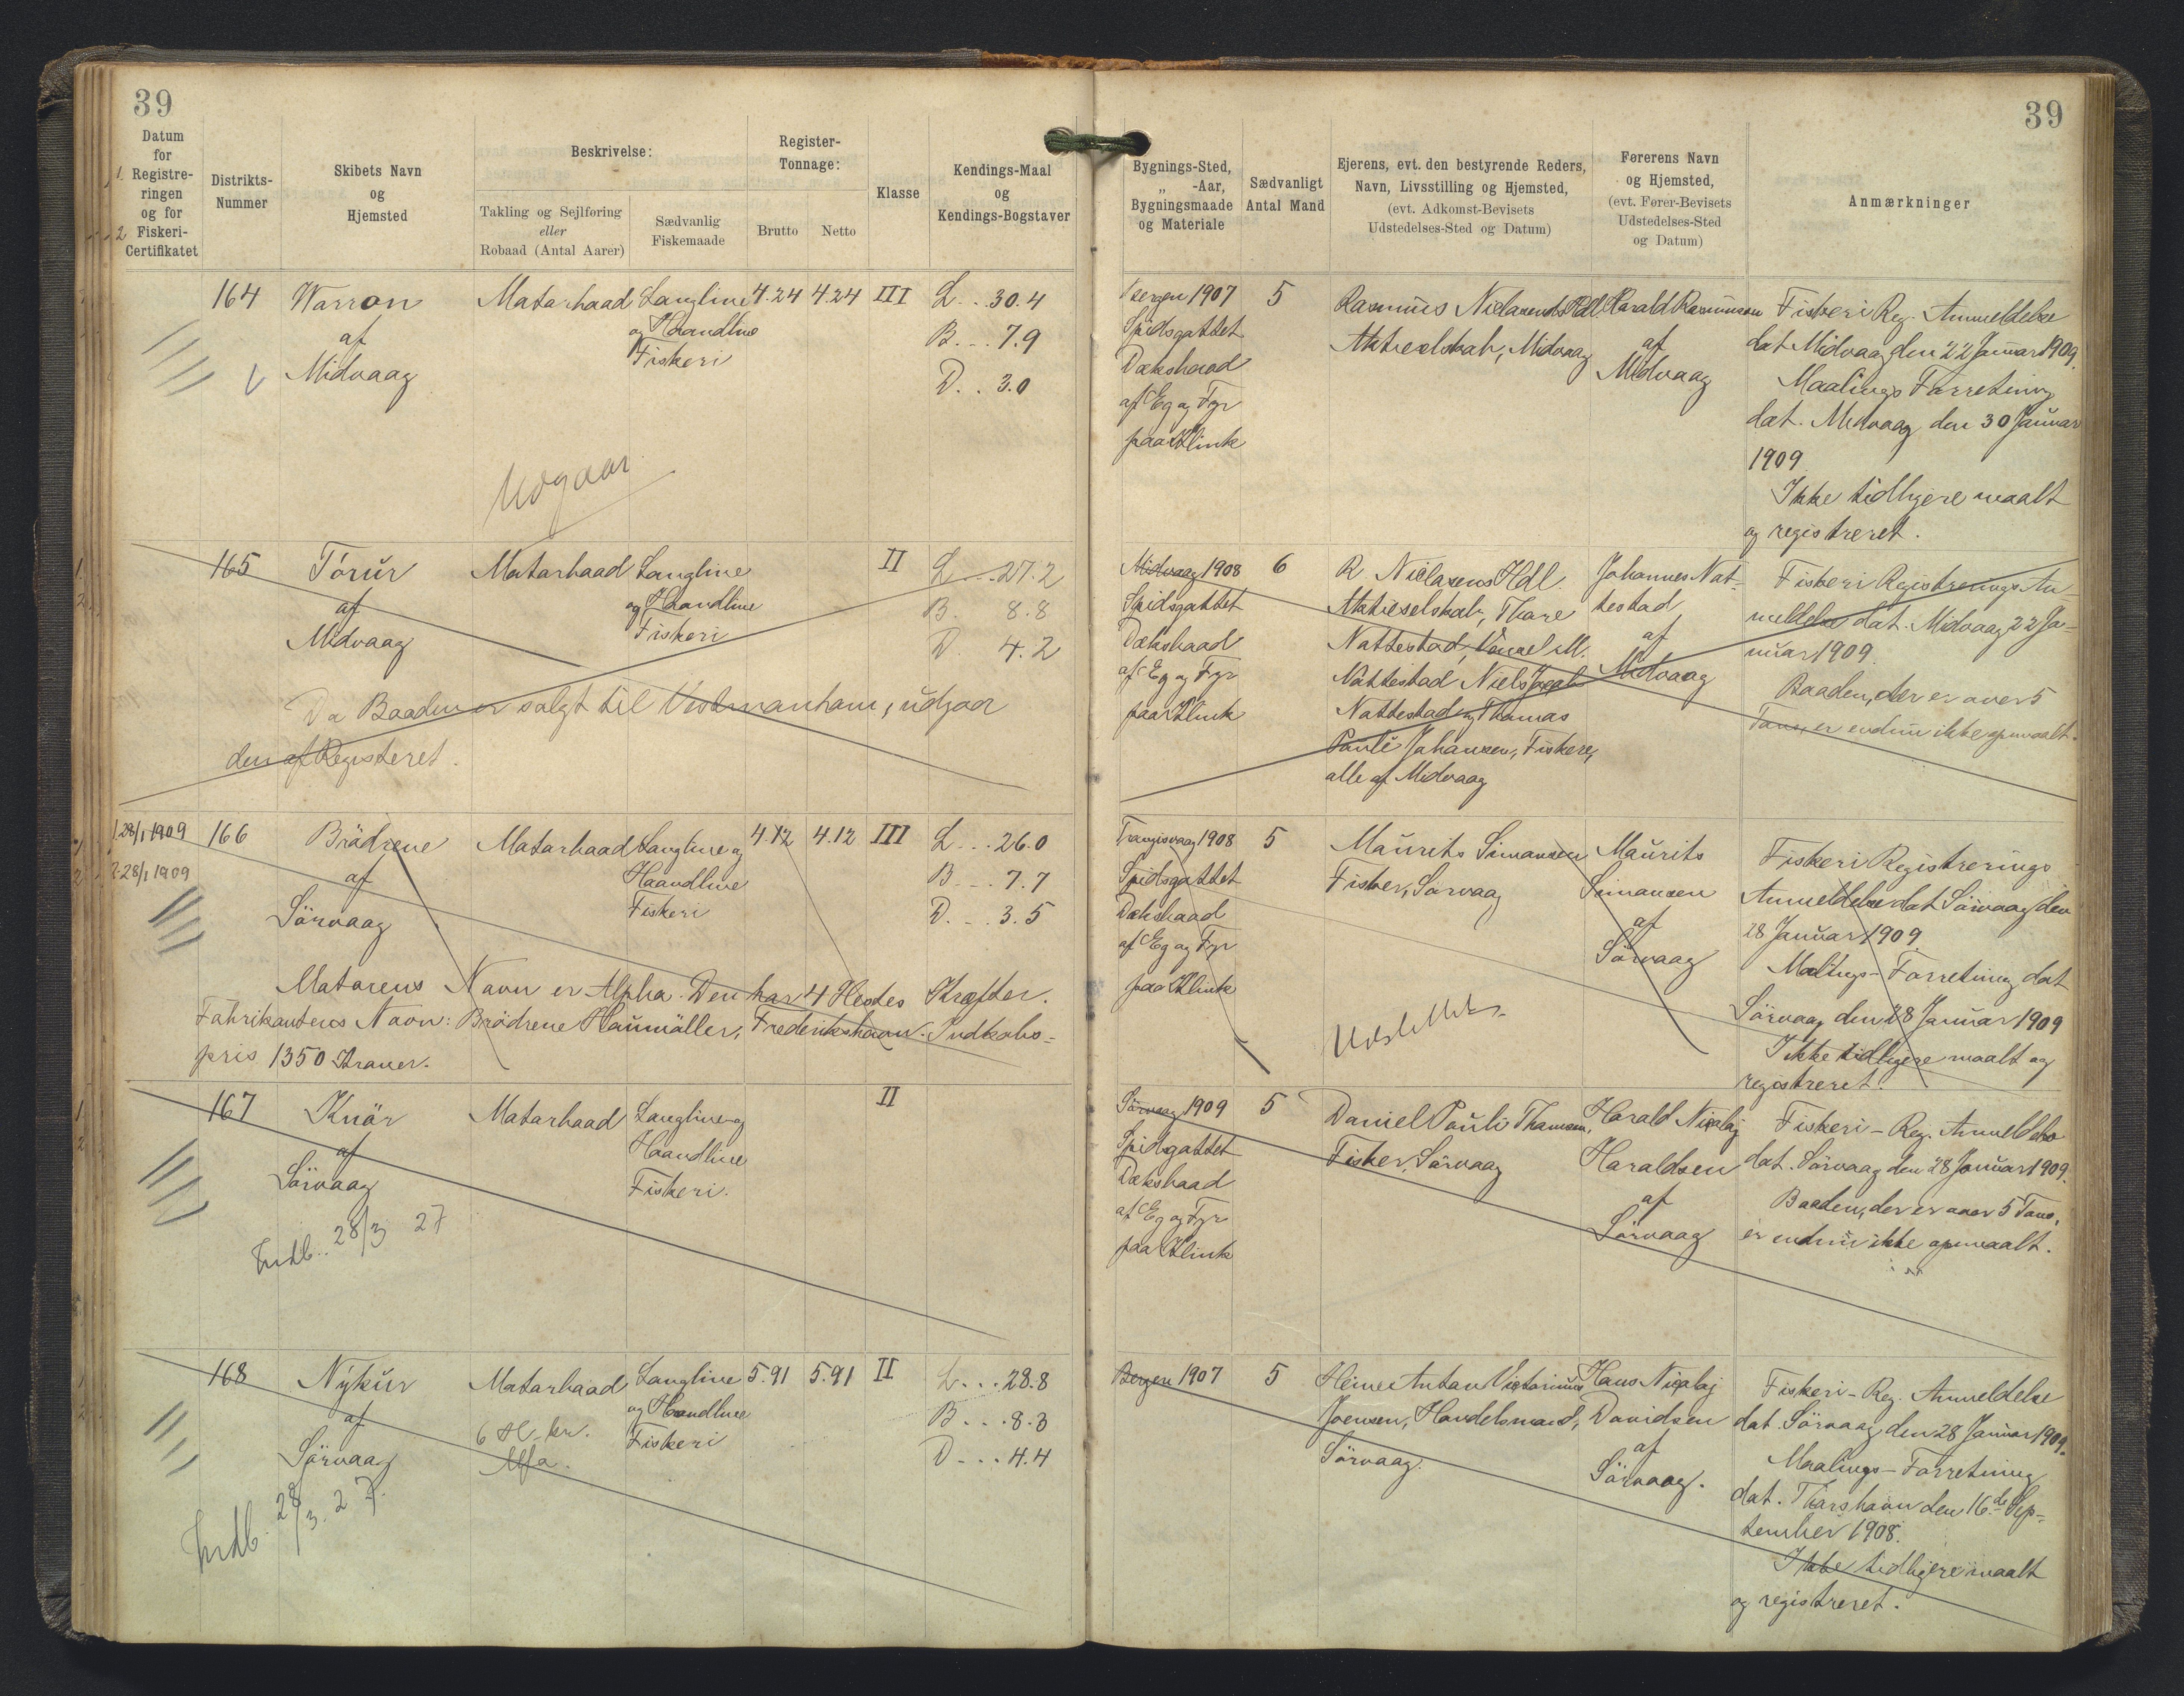 39
39
Datum
for
1. Registre-
ringen
og for
2 Fiskeri-
Certifikatet
Distrikts-
Nummer
Skibets Navn
og
Hjemsted
Beskrivelse:
Takling og Sejlføring
eller
Robaad (Antal Aarer)
Sædvanlig
Fiskemaade
Register-
Tonnage:
Brutto
Netto
Klasse
Kendings-Maal
og
Kendings-Bogstaver
Bygnings-Sted,
„ -Aar,
Bygningsmaade
og Materiale
Sædvanligt
Antal Mand
Ejerens, evt. den bestyrende Reders,
Navn, Livsstilling og Hjemsted,
(evt. Adkomst-Bevisets
Udstedelses-Sted og Datum)
Førerens Navn
og Hjemsted,
(evt. Fører-Bevisets
Udstedelses-Sted
og Datum)
Anmærkninger
164
Warron
af
Midvaag
Motorbaad
Langline
og Haandline
Fiskeri
4.24
4.24
III
L... 30.4
B... 7.9
D.. 3.0
Udgaar
Bergen 1907
Spidsgattet
Dæksbaad
af Eg og Fyr
paa Klink
5
Rasmus Niclasens Hdl.
Aktieselskab, Midvaag
Harald Rasmussen
af
Midvaag
Fiskeri Reg. Anmeldelse
dat Midvaag den 22 Januar 1909.
Maalings Forretning
dat. Midvaag den 30 Januar
1909
Ikke tidligere maalt
og registreret.
165
Tórur
af
Midvaag
Motorbaad
Langline
og Haandline
Fiskeri
II
L... 27.2
B. 8.8
D. 4.2
Da Baaden er solgt til Vestmanhavn, udgaar
den af Registeret.
Midvaag 1908
Spidsgattet
Dæksbaad
af Eg og Fyr
paa Klink
6
R Niclasens Hdl.
Aktieselskab, Thore
Nattestad, M.
Nattestad Niels Jacob
Nattestad og Thomas
Pauli Johansen, Fiskere,
alle af Midvaag
Johannes Nat-
testad
af
Midvaag
Fiskeri Registrerings An-
meldelse dat. Midvaag 22 Ja-
nuar 1909.
Baaden, der er over 5
Tons, er endnu ikke opmaalt.
1. 28/1 1909
2. 28/1 1909
166
Brödrene
af
Sörvaag
Motorbaad
Langline og
Haandline
Fiskeri
4.12
4.12
III
L... 26.0
B... 7.7
D... 3.5
Motorens Navn er Alpha. Den har 4 Hestes Kræfter.
Fabrikantens Navn: Brödrene Houmöller, Frederikshavn. Indkøbs-
pris 1350 Kroner.
Trangisvaag 1908
Spidsgattet
Dæksbaad
af Eg og Fyr
paa Klink
5
Maurits Simonsen
Fisker, Sörvaag
Udslettes
Maurits
Simonsen
af
Sörvaag
Fiskeri Registrerings
Anmeldelse dat Sörvaag den
28 Januar 1909.
Maalings-Forretning dat
Sörvaag den 28 Januar 1909
Ikke tidligere maalt og
registreret.
167
Knör
af
Sörvaag
Motorbaad
Langline og
Haandline
Fiskeri.
II
Indb.. 28/3 27
Sörvaag 1909
Spidsgattet
Dæksbaad
af Eg og Fyr
paa Klink
5
Daniel Pauli Thomsen,
Fisker, Sörvaag
Harald Nicolaj
Haraldsen
af
Sörvaag
Fiskeri-Reg. Anmeldelse
dat. Sörvaag den 28 Januar 1909.
Baaden, der er over 5 Tons,
er endnu ikke opmaalt.
168
Nýkur
af
Sörvaag
Motorbaad
6 H.-kr.
Alfa.
Langline
og Haandline
Fiskeri
5.91
5.91
II
L... 28.8
B... 8.3
D... 4.4
Indb. 28/3. 27.
Bergen 1907
5
Heine Anton Victorinus
Joensen, Handelsmand,
Sörvaag.
Hans Nicolaj
Davidsen
af
Sörvaag.
Fiskeri-Reg. Anmeldelse
dat. Sörvaag den 28 Januar 1909.
Maalings-Forretning
dat. Thorshavn den 16de Sep-
tember 1908.
Ikke tidligere maalt
og registreret.